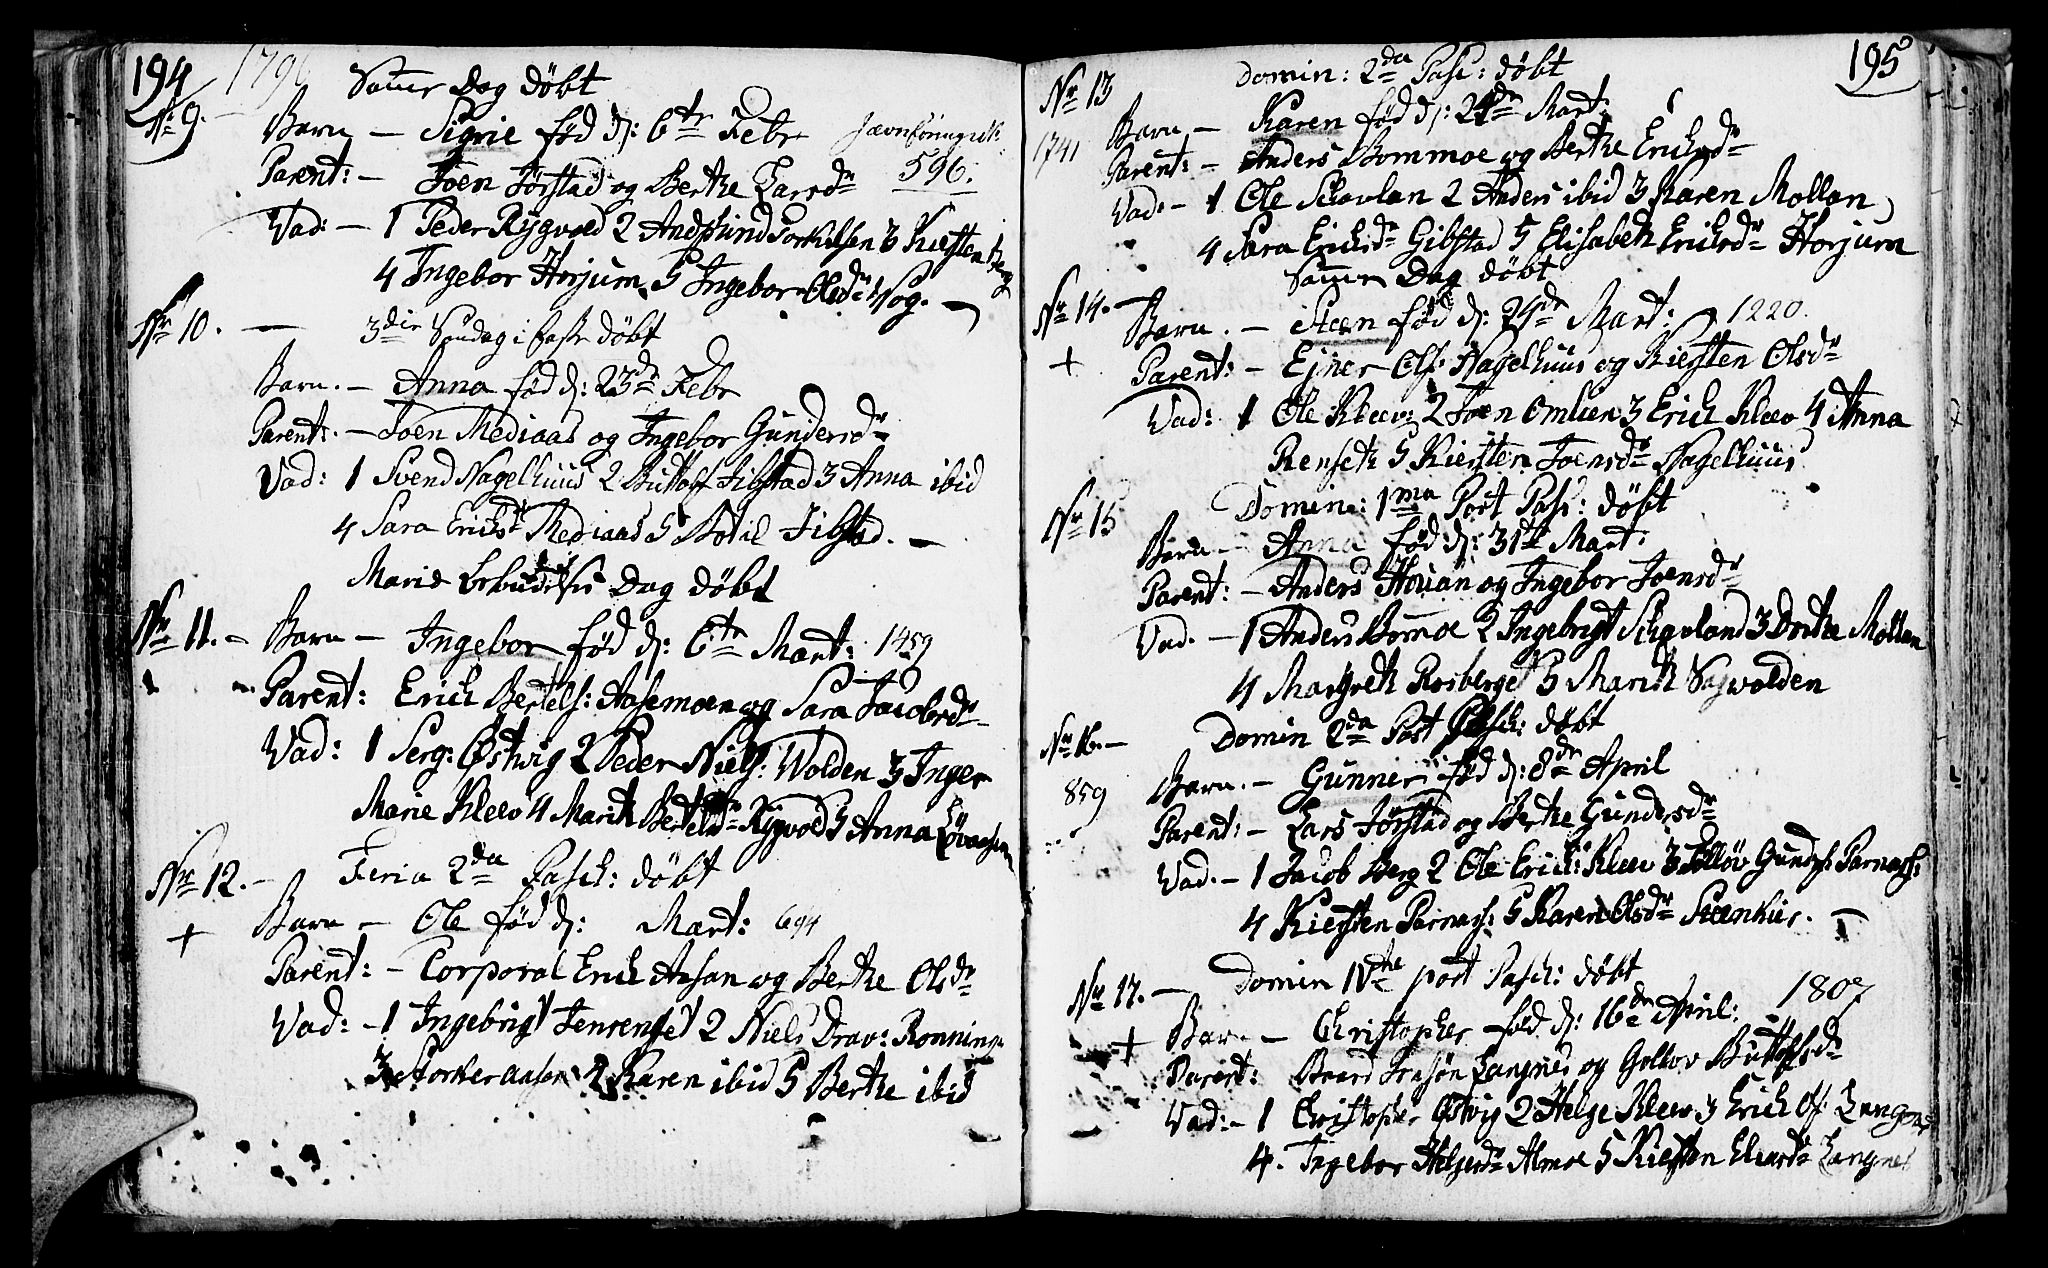 194 179
Samme Dag døbt
No 9.
Barn — Sigrie fød d: 6te Febr
Parent: — Joen Jørstad og Berthe Larsdr 596.
Vad: — 1 Peder Rygvold 2 Andsund Torkelsen 3 Kiersten
4 Ingebor Horjum 5 Ingebor Olsdr Wog. —
Nr 10. — 3die Søndag i Faste døbt
Barn. — Anna fød d: 23de Febr
Parent. — Joen Mediaas og Ingebor Gundersdr
Vad: 1 Svend Nagelhuus 2 Buttolf Jibstad 3 Anna ibid
4 Sara Ericksdr Mediaas 5 Botil Jibstad. —
Mariæ Dag døbt
Nr 11. — Barn — Ingebor fød d: 6te Mart: 1459
Parent: Erich Bertels: Aasemoen og Sara Jacobsdr
Vad: 1 Serg: Østwig 2 Peder Niels: Wolden 3 Inger
Marie Kleev 4 Marith Bertelsdr Rygvold 5 Anna
Nr 12. — Feria 2da Pasch: døbt
+ Barn — Ole fød d: Mart: 694
Parent: — Corporal Erich Aasan og Berthe Olsdr
Vad: — 1 Ingebrigt Jenrenget 2 Niels Drav: Ronning
3 Storker Aasen 4 Karen ibid 5 Berthe ibid
195
Nr 13 Domin: 2da Pasc: døbt
1741 Barn — Karen fød d: 24de Mart:
Parent: — Anders Bommoe og Berthe Ericksdr
Vad: — 1 Ole Skavlan 2 Anders ibid 3 Karen Mollan
4 Sara Ericksdr Gibstad 5 Elisabeth Ericksdr Horjum
Samme Dag døbt
Nr 14. — Barn. — Steen fød d: 24de Mart: 1220.
+ Parent: — Ejner Ols: Nagelhuus og Kiersten Olsdr
Vad: 1 Ole Kleev: 2 Joen Omlien 3 Erich Kleev 4 Anna
Renseth 5 Kiersten Joensdr Nagelhuus
Nr 15 Domin: 1ma Post Pasc: døbt
Barn — Anna fød d: 31te Mart:
Parent: — Anders Houan og Ingebor Joensdr
Vad. — 1 Anders Bommoe 2 Ingebrigt Schavland 3 Dorthe Mollan
4 Margreth Rosberget 5 Marith Sagwolden
Nr 16. — Domin 2da Post Pasch: døbt
859 Barn. — Gunner fød d: 8de April
Parent: — Lars Jørstad og Berthe Gundersdr
Vad. — 1 Jacob Berg 2 Ole Erick: Kleev 3 Gunders: Parnass:
4 Kiersten Parnass: 5 Karen Olsdr Steenkier. —
Nr 17. — Domin IVthe post Pasch: døbt
+ Barn — Christopher fød d: 16de April: 1807
Parent: Baard Langnes og Gollov Buttolfsdr
Vad: — 1 Christopher Østvig 2 Helge Kleev 3 Erich Ols: Langnes
4. Ingebor Helgesdr Almoe 5 Kiersten Elensdr Langnes